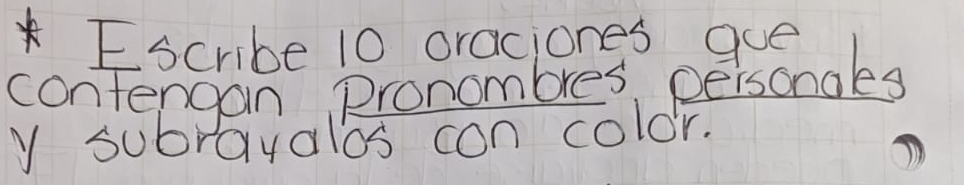 * Escribe 10 oraciones que
contengan pronombres personales
y subrayalos con color.